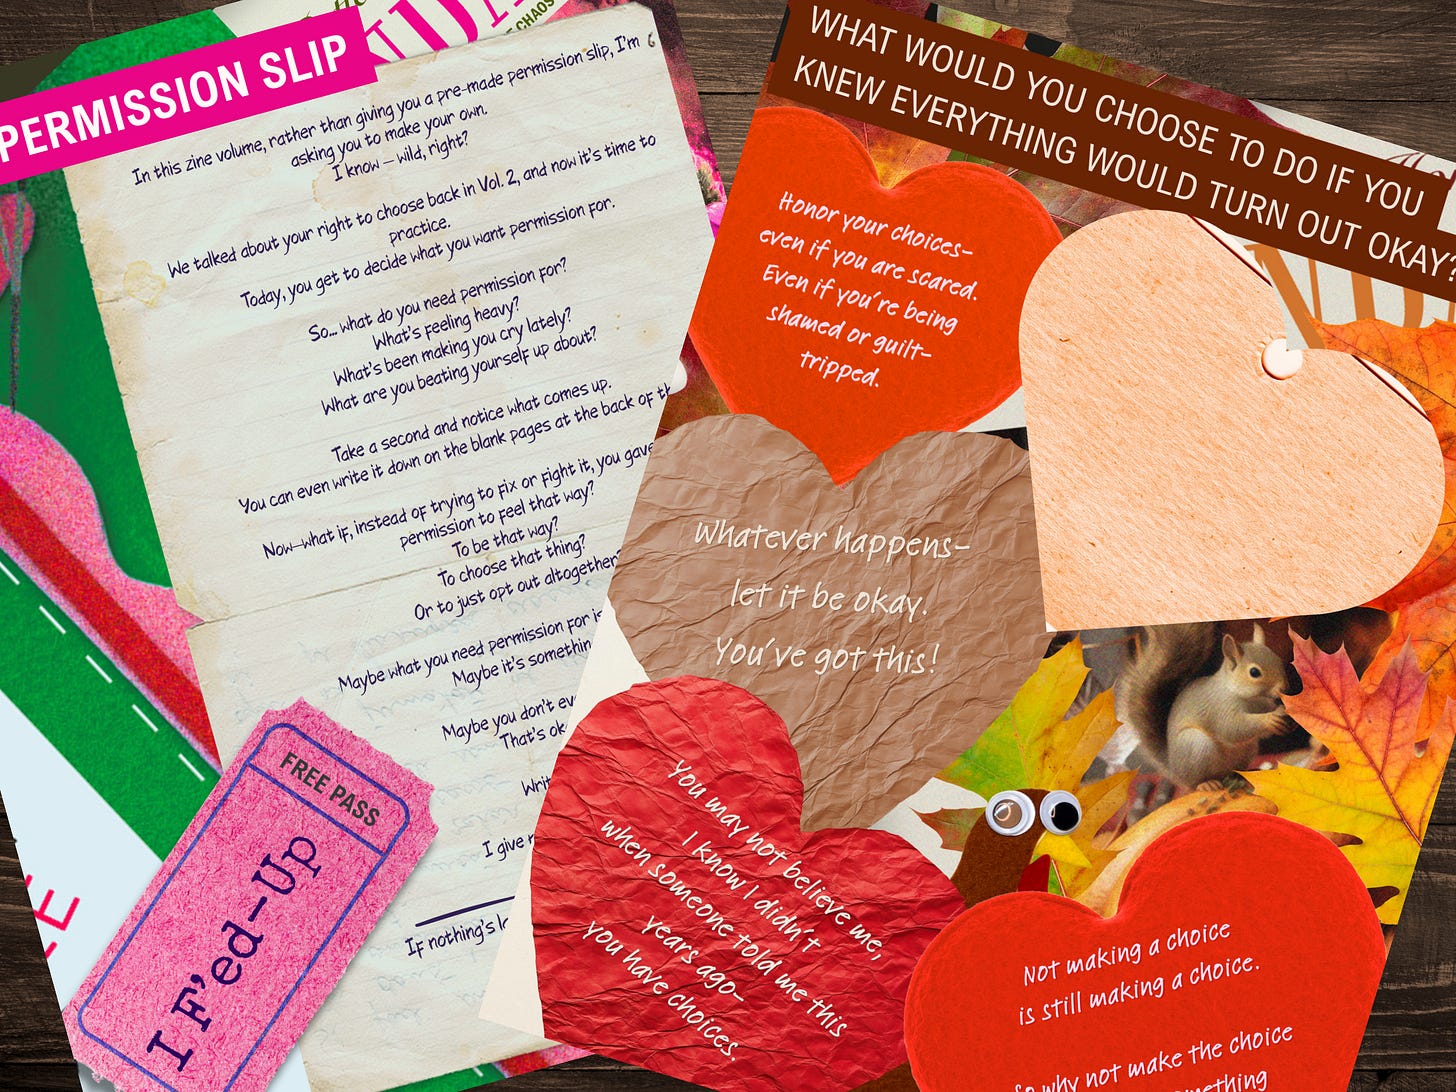 CHAOS
PERMISSION SLIP
In this zine volume, rather than giving you a pre-made permission slip, I'm
asking you to make your own.
I know – wild, right?
We talked about your right to choose back in Vol. 2, and now it's time to
practice.
Today, you get to decide what you want permission for.
So... what do you need permission for?
What's feeling heavy?
What's been making you cry lately?
What are you beating yourself up about?
Take a second and notice what comes up.
You can even write it down on the blank pages at the back of th
Now–what if, instead of trying to fix or fight it, you gave
permission to feel that way?
To be that way?
To choose that thing?
Or to just opt out altogether
Maybe what you need permission for is
Maybe it's somethin
Maybe you don't ev
That's ok
Writ
I give
If nothing's
FREE PASS
I F'ed-Up
WHAT WOULD YOU CHOOSE TO DO IF YOU
KNEW EVERYTHING WOULD TURN OUT OKAY?
Honor your choices–
even if you are scared.
Even if you're being
shamed or guilt–
tripped.
Whatever happens–
let it be okay.
You've got this!
You may not believe me,
I know I didn't
when someone told me this
years ago–
you have choices.
Not making a choice
is still making a choice.
So why not make the choice